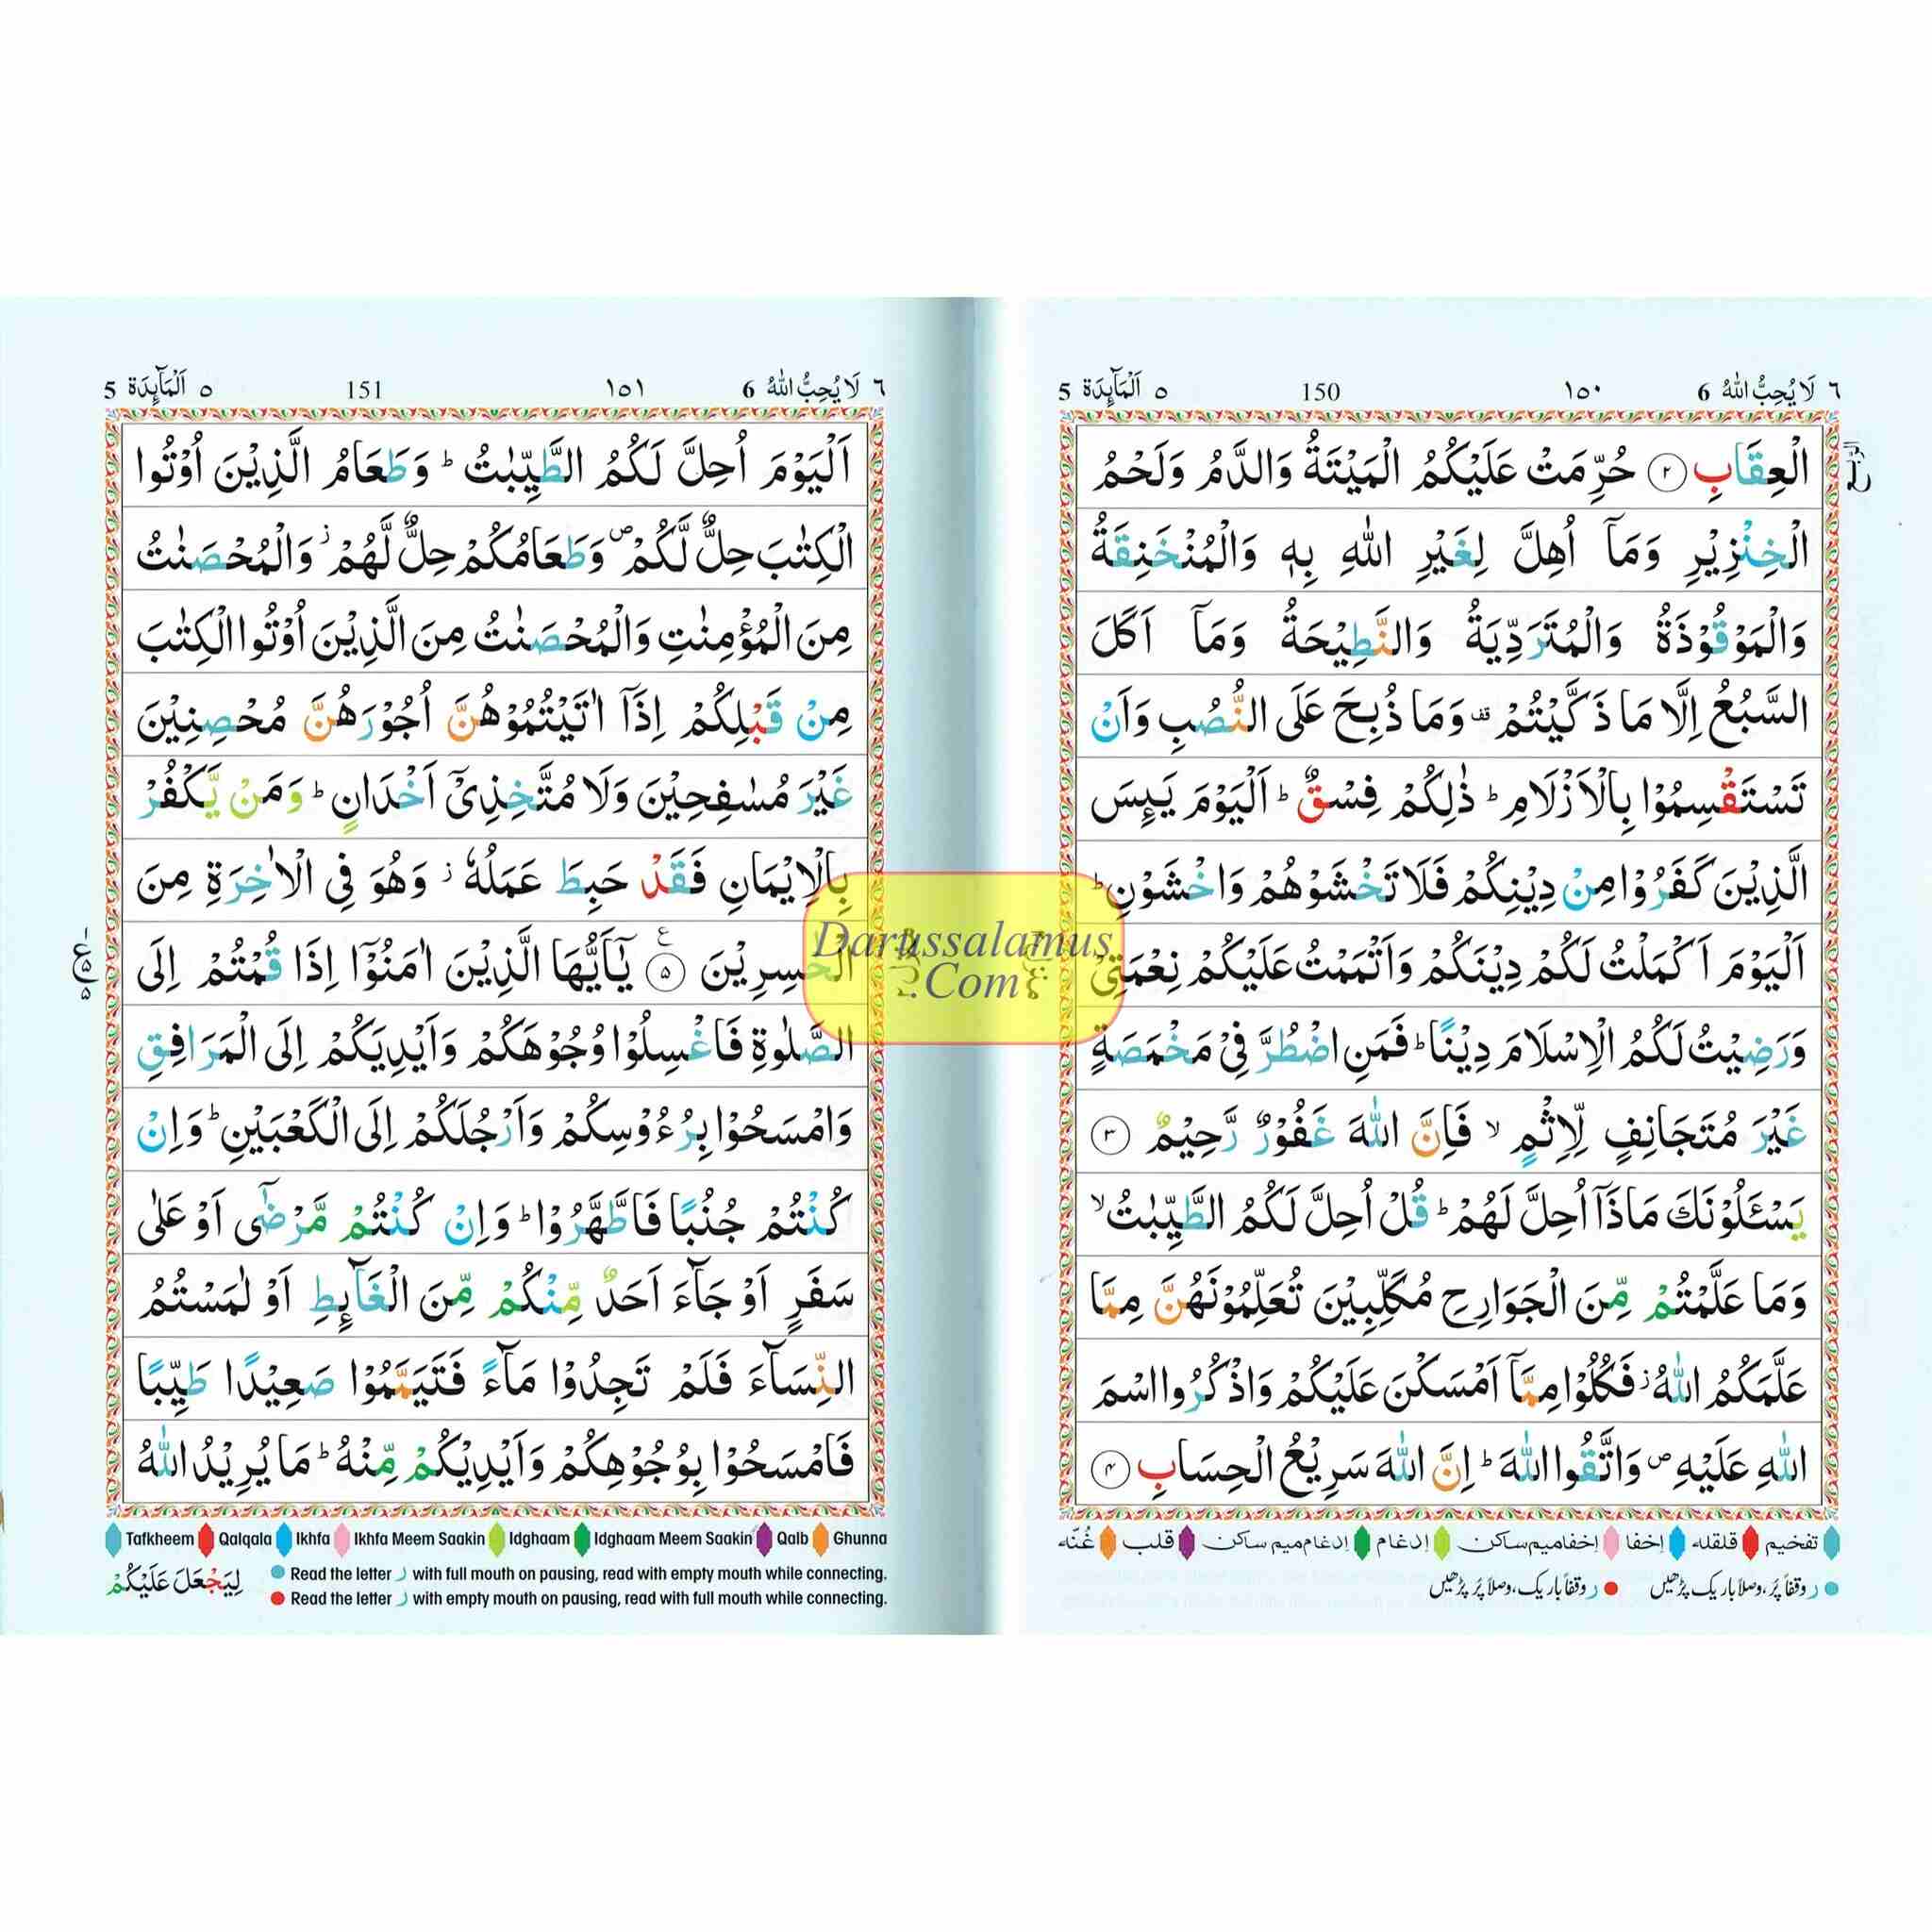 ٦ لَا يُحِبُّ اللّٰهُ 6 ١٥٠ 150 ٥ اَلْمَآىِٕدَة 5
الْعِقَابِ ۝٢ حُرِّمَتْ عَلَيْكُمُ الْمَيْتَةُ وَالدَّمُ وَلَحْمُ
الْخِنْزِيْرِ وَمَآ اُهِلَّ لِغَيْرِ اللّٰهِ بِهٖ وَالْمُنْخَنِقَةُ
وَالْمَوْقُوْذَةُ وَالْمُتَرَدِّيَةُ وَالنَّطِيْحَةُ وَمَآ اَكَلَ
السَّبُعُ اِلَّا مَا ذَكَّيْتُمْ ۫ وَمَا ذُبِحَ عَلَى النُّصُبِ وَاَنْ
تَسْتَقْسِمُوْا بِالْاَزْلَامِ ؕ ذٰلِكُمْ فِسْقٌ ؕ اَلْيَوْمَ يَىِٕسَ
الَّذِيْنَ كَفَرُوْا مِنْ دِيْنِكُمْ فَلَا تَخْشَوْهُمْ وَاخْشَوْنِ ؕ
اَلْيَوْمَ اَكْمَلْتُ لَكُمْ دِيْنَكُمْ وَاَتْمَمْتُ عَلَيْكُمْ نِعْمَتِيْ
وَرَضِيْتُ لَكُمُ الْاِسْلَامَ دِيْنًا ؕ فَمَنِ اضْطُرَّ فِيْ مَخْمَصَةٍ
غَيْرَ مُتَجَانِفٍ لِّاِثْمٍ ۙ فَاِنَّ اللّٰهَ غَفُوْرٌ رَّحِيْمٌ ۝٣
يَسْـَٔلُوْنَكَ مَاذَآ اُحِلَّ لَهُمْ ؕ قُلْ اُحِلَّ لَكُمُ الطَّيِّبٰتُ ۙ
وَمَا عَلَّمْتُمْ مِّنَ الْجَوَارِحِ مُكَلِّبِيْنَ تُعَلِّمُوْنَهُنَّ مِمَّا
عَلَّمَكُمُ اللّٰهُ ؗ فَكُلُوْا مِمَّآ اَمْسَكْنَ عَلَيْكُمْ وَاذْكُرُوا اسْمَ
اللّٰهِ عَلَيْهِ ۪ وَاتَّقُوا اللّٰهَ ؕ اِنَّ اللّٰهَ سَرِيْعُ الْحِسَابِ ۝٤
تفخیم قلقله اِخفا اِخفامیم ساکن اِدغام اِدغام میم ساکن قلب غُنّه
ر وقفاً پُر، وصلاً باریک پڑھیں ر وقفاً باریک، وصلاً پُر پڑھیں
٦ لَا يُحِبُّ اللّٰهُ 6 ١٥١ 151 ٥ اَلْمَآىِٕدَة 5
اَلْيَوْمَ اُحِلَّ لَكُمُ الطَّيِّبٰتُ ؕ وَطَعَامُ الَّذِيْنَ اُوْتُوا
الْكِتٰبَ حِلٌّ لَّكُمْ ۪ وَطَعَامُكُمْ حِلٌّ لَّهُمْ ؗ وَالْمُحْصَنٰتُ
مِنَ الْمُؤْمِنٰتِ وَالْمُحْصَنٰتُ مِنَ الَّذِيْنَ اُوْتُوا الْكِتٰبَ
مِنْ قَبْلِكُمْ اِذَآ اٰتَيْتُمُوْهُنَّ اُجُوْرَهُنَّ مُحْصِنِيْنَ
غَيْرَ مُسٰفِحِيْنَ وَلَا مُتَّخِذِيْٓ اَخْدَانٍ ؕ وَمَنْ يَّكْفُرْ
بِالْاِيْمَانِ فَقَدْ حَبِطَ عَمَلُهٗ ؗ وَهُوَ فِي الْاٰخِرَةِ مِنَ
الْخٰسِرِيْنَ ۝٥ ع يٰٓاَيُّهَا الَّذِيْنَ اٰمَنُوْٓا اِذَا قُمْتُمْ اِلَى
الصَّلٰوةِ فَاغْسِلُوْا وُجُوْهَكُمْ وَاَيْدِيَكُمْ اِلَى الْمَرَافِقِ
وَامْسَحُوْا بِرُءُوْسِكُمْ وَاَرْجُلَكُمْ اِلَى الْكَعْبَيْنِ ؕ وَاِنْ
كُنْتُمْ جُنُبًا فَاطَّهَّرُوْا ؕ وَاِنْ كُنْتُمْ مَّرْضٰٓى اَوْ عَلٰى
سَفَرٍ اَوْ جَآءَ اَحَدٌ مِّنْكُمْ مِّنَ الْغَآىِٕطِ اَوْ لٰمَسْتُمُ
النِّسَآءَ فَلَمْ تَجِدُوْا مَآءً فَتَيَمَّمُوْا صَعِيْدًا طَيِّبًا
فَامْسَحُوْا بِوُجُوْهِكُمْ وَاَيْدِيْكُمْ مِّنْهُ ؕ مَا يُرِيْدُ اللّٰهُ
Tafkheem Qalqala Ikhfa Ikhfa Meem Saakin Idghaam Idghaam Meem Saakin Qalb Ghunna
Read the letter ر with full mouth on pausing, read with empty mouth while connecting.
Read the letter ر with empty mouth on pausing, read with full mouth while connecting.
لِيَجْعَلَ عَلَيْكُمْ
Darussalamus
.Com